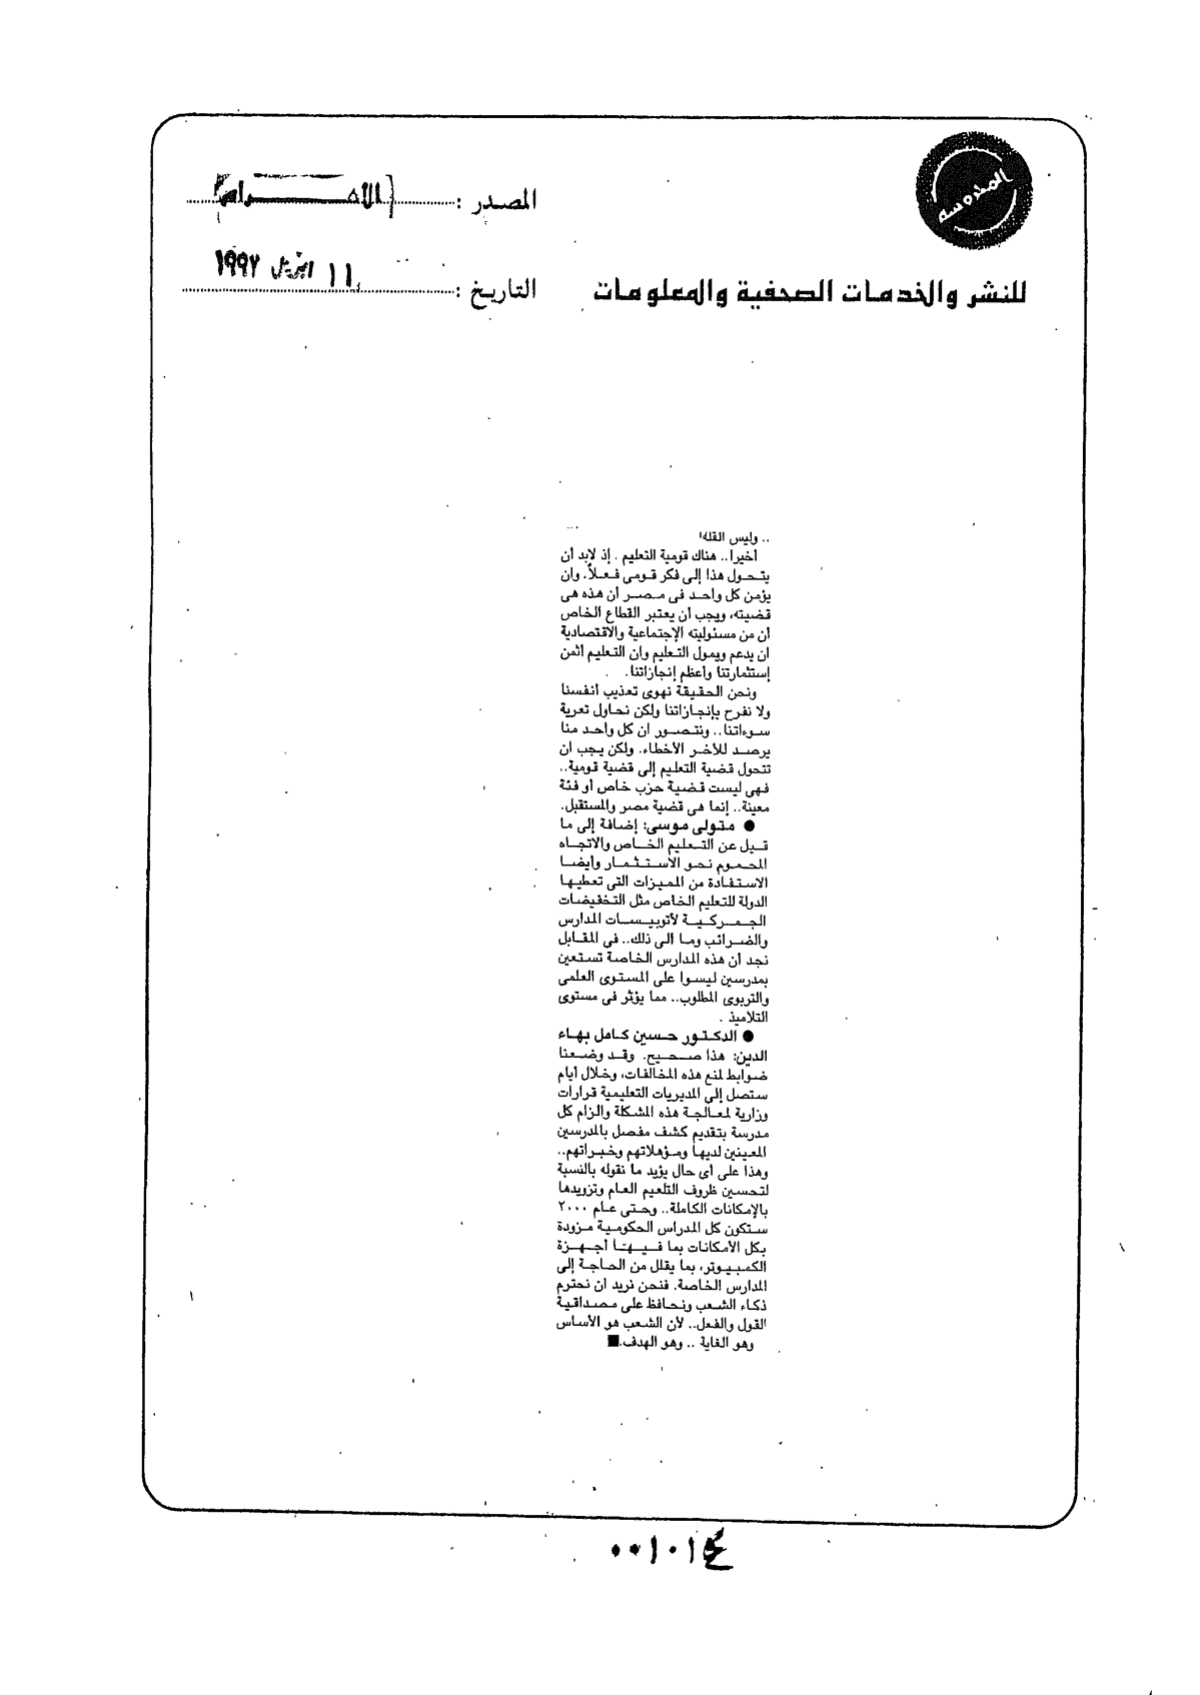 المحروسة
المصدر : الأهرام
التاريخ : ١١ ابريل ١٩٩٢
للنشر والخدمات الصحفية والمعلومات
.. وليس القلة!
أخيرا.. هناك قومية التعليم . إذ لابد أن
يتحول هذا إلى فكر قومى فعلاً. وان
يؤمن كل واحد فى مصر أن هذه هى
قضيته، ويجب أن يعتبر القطاع الخاص
أن من مسئوليته الإجتماعية والاقتصادية
ان يدعم ويمول التعليم وان التعليم أثمن
إستثمارتنا وأعظم إنجازاتنا.
ونحن الحقيقة نهوى تعذيب أنفسنا
ولا نفرح بإنجازاتنا ولكن نحاول تعرية
سوءاتنا.. ونتصور ان كل واحد منا
يرصد للآخر الأخطاء. ولكن يجب ان
تتحول قضية التعليم إلى قضية قومية..
فهى ليست قضية حزب خاص أو فئة
معينة.. إنما هى قضية مصر والمستقبل.
● متولى موسى: إضافة إلى ما
قيل عن التعليم الخاص والاتجاه
المحموم نحو الاستثمار وأيضا
الاستفادة من المميزات التى تعطيها
الدولة للتعليم الخاص مثل التخفيضات
الجمركية لأتوبيسات المدارس
والضرائب وما الى ذلك.. فى المقابل
نجد أن هذه المدارس الخاصة تستعين
بمدرسين ليسوا على المستوى العلمى
والتربوى المطلوب.. مما يؤثر فى مستوى
التلاميذ .
● الدكتور حسين كامل بهاء
الدين: هذا صحيح. وقد وضعنا
ضوابط لمنع هذه المخالفات، وخلال أيام
ستصل إلى المديريات التعليمية قرارات
وزارية لمعالجة هذه المشكلة والزام كل
مدرسة بتقديم كشف مفصل بالمدرسين
المعينين لديها ومؤهلاتهم وخبراتهم..
وهذا على أى حال يؤيد ما نقوله بالنسبة
لتحسين ظروف التلعيم العام وتزويدها
بالإمكانات الكاملة.. وحتى عام ٢٠٠٠
ستكون كل المدراس الحكومية مزودة
بكل الأمكانات بما فيها أجهزة
الكمبيوتر، بما يقلل من الحاجة إلى
المدارس الخاصة. فنحن نريد ان نحترم
ذكاء الشعب ونحافظ على مصداقية
القول والفعل.. لأن الشعب هو الأساس
وهو الغاية .. وهو الهدف.■